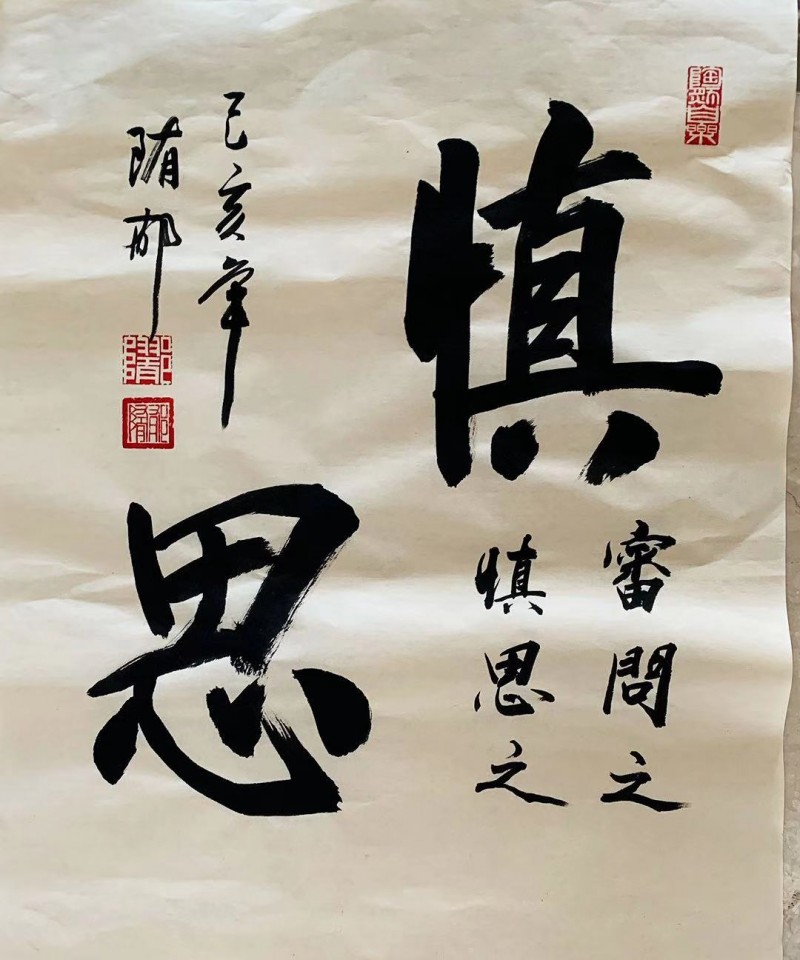 慎
思
審問之
慎思之
己亥年